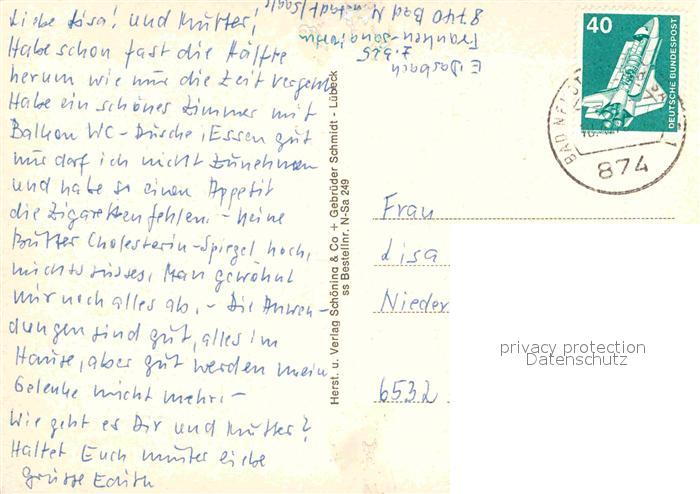 Liebe Lisa! und Mutter!
Habe schon fast die Hälfte
herum wie nur die Zeit vergeht
Habe ein schönes Zimmer mit
Balkon WC-Dusche, Essen gut
nur darf ich nicht zunehmen
und habe so einen Appetit
die Zigaretten fehlen. - keine
Butter Cholesterin-Spiegel hoch,
nichts süsses. Man gewöhnt
mir noch alles ab. - Die Anwen-
dungen sind gut, alles im
Hause, aber gut werden mein
Gelenke nicht mehr. -
Wie geht es Dir und Mutter?
Haltet Euch munter liebe
Grüsse Edith
Franken-sanatorium
8740 Bad N
Herst. u. Verlag Schöning & Co + Gebrüder Schmidt - Lübeck
ss Bestellnr. N-Sa 249
40
DEUTSCHE BUNDESPOST
BAD NEUST
874
Frau
Lisa
Nieder
6532
privacy protection
Datenschutz